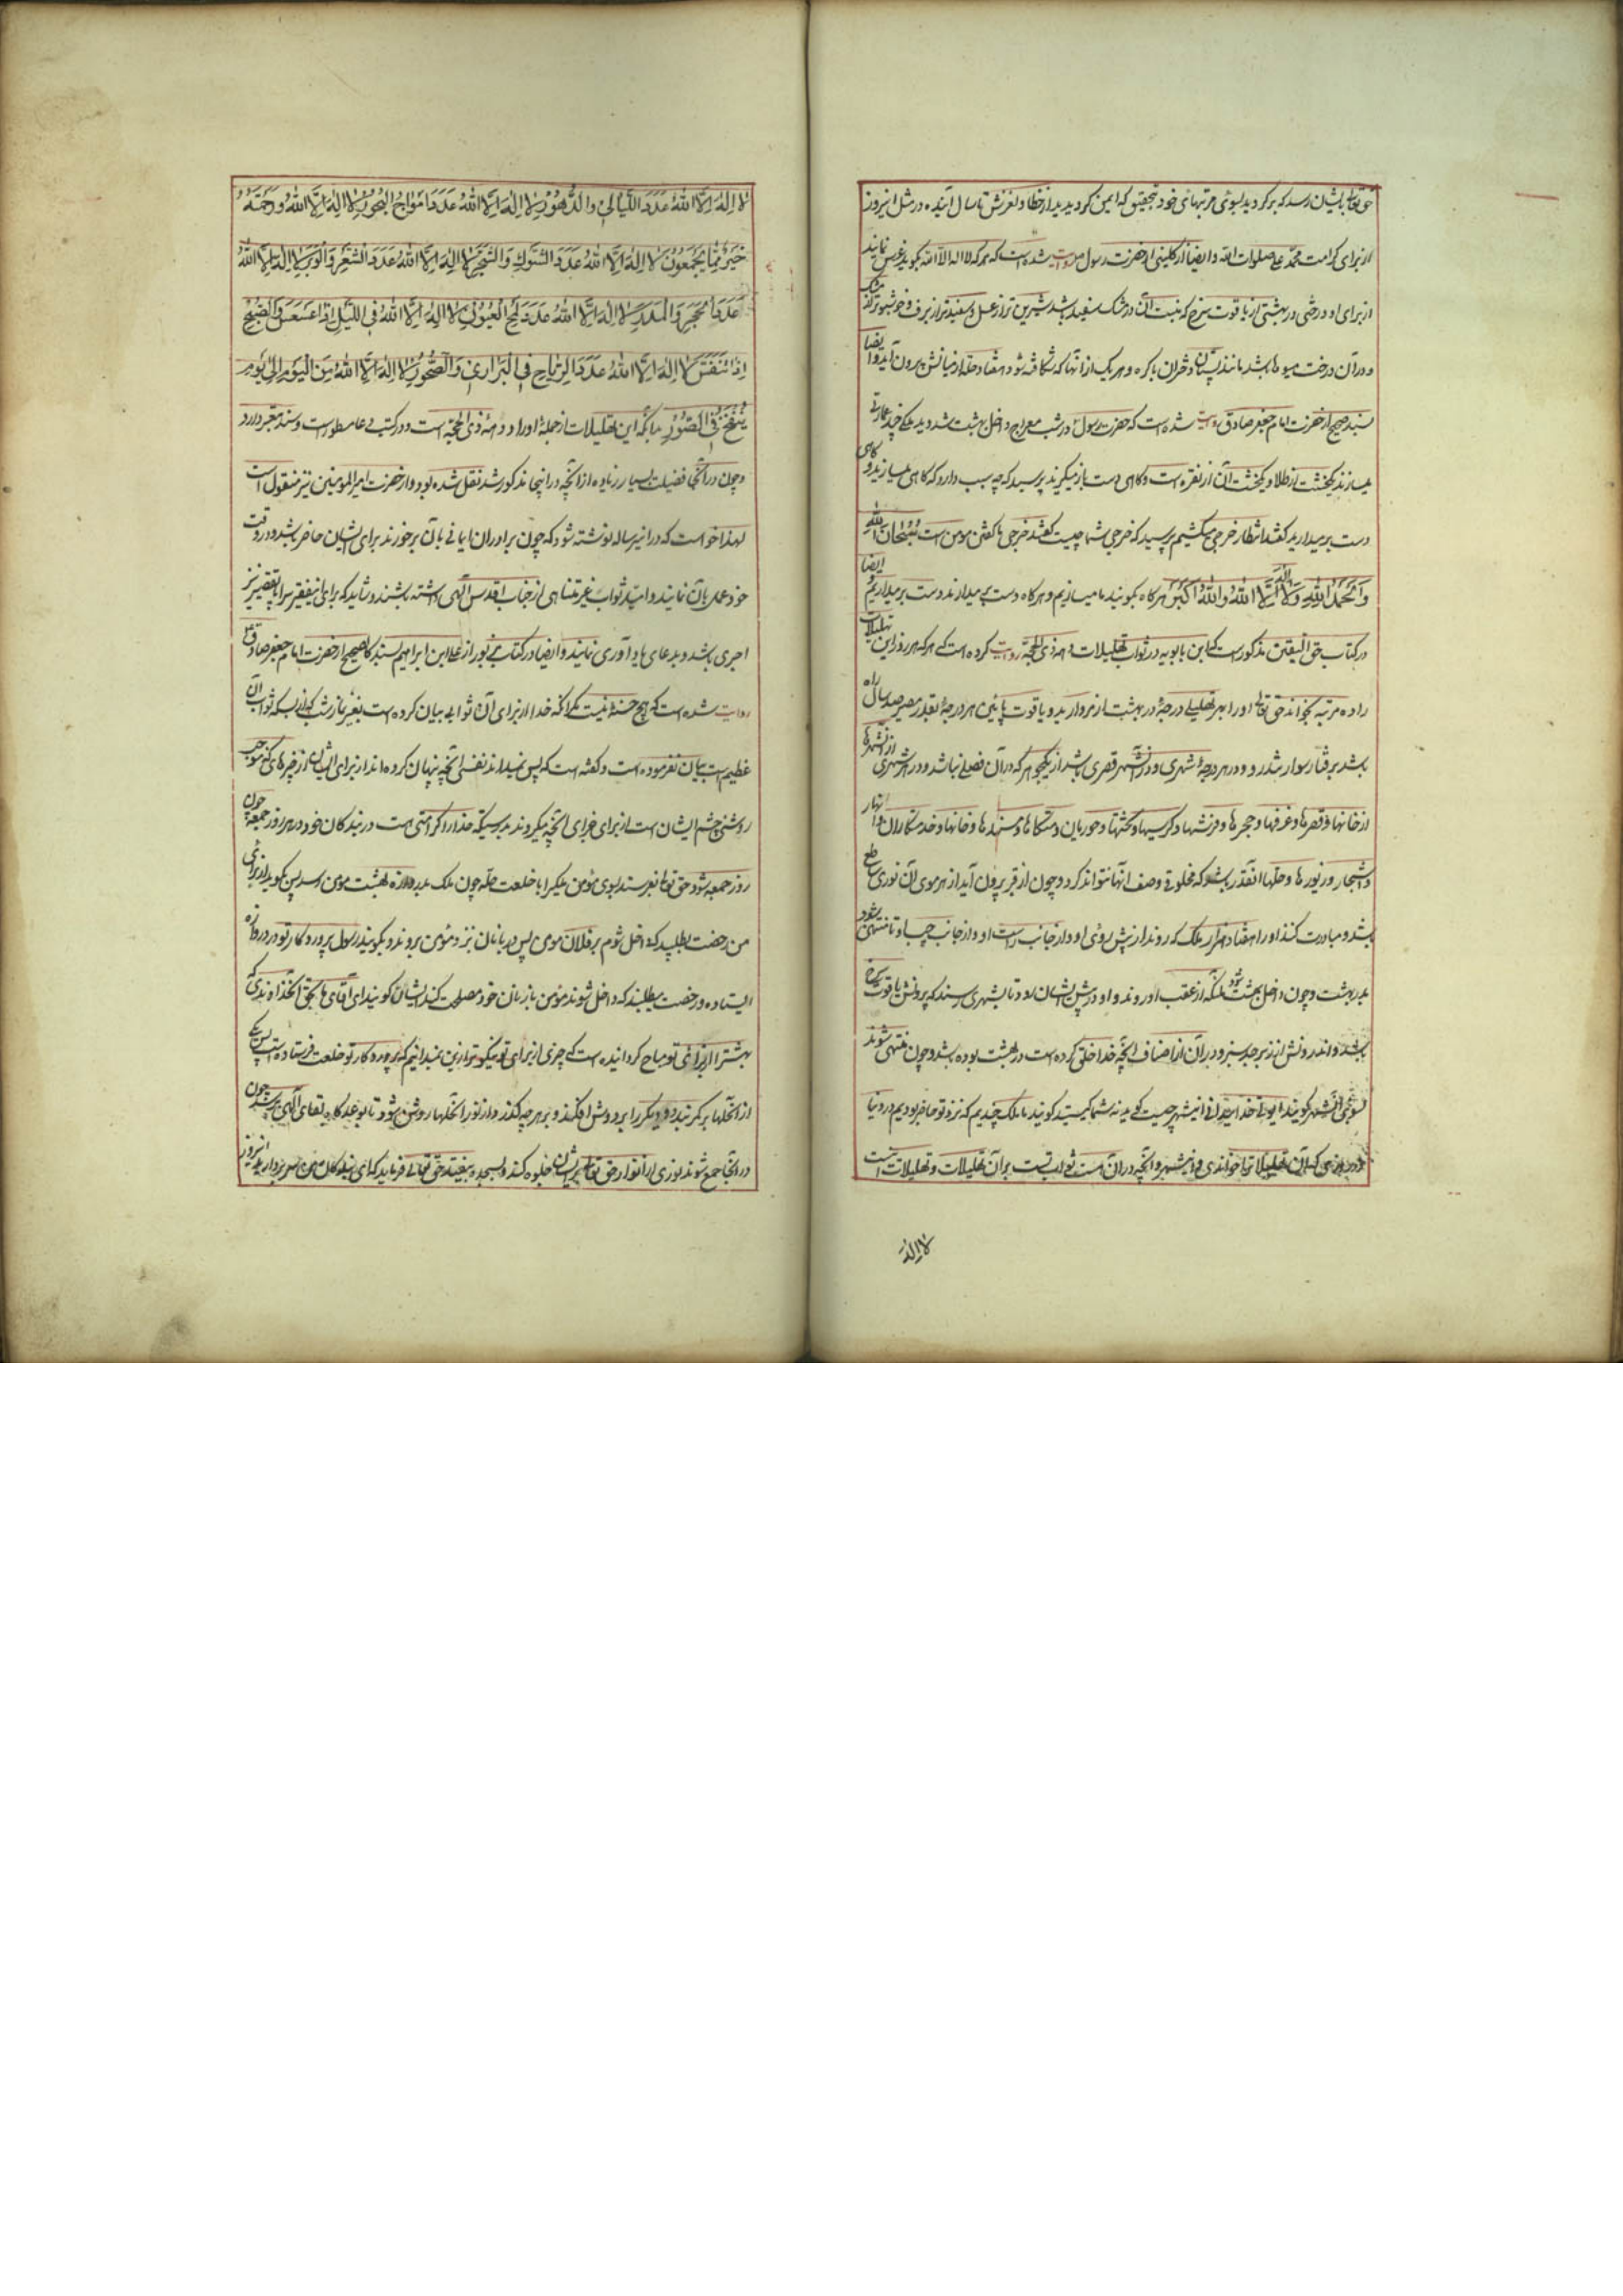 حق تعالی بایشان رسد که برگردید بسوی مرتبهای خود بتحقیق که ایمن گردیدید از خطا و لغزش تا سال آینده در مثل این روز
از برای کرامت محمد و علی صلوات الله و ایضا از کلینی از حضرت رسول مرویست شده است که هر که لا اله الا الله بگوید غرس نمایند
از برای او درختی در بهشتی از یاقوت سرخ که منبت آن در مشک سفید باشد شیرین تر از عسل و سفیدتر از برف و خوشبوتر از مشک
و در آن درخت میوها باشد مانند پستان دختران باکره و هر یک از آنها که شکافته شود هفتاد حله از میانش بیرون آید و ایضا
بسند صحیح از حضرت امام جعفر صادق روایت شده است که حضرت رسول در شب معراج داخل بهشت شد و دید ملکی چند عمارتی
میسازند یکخشت از طلا و یکخشت آن از نقره است و گاهی دست باز میگیرند پرسید که چه سبب دارد که گاهی میسازید و گاهی
دست برمیدارید گفتند انتظار خرجی میکشیم پرسید که خرجی شما چیست گفتند خرجی ما گفتن مومن است سُبْحَانَ اللهِ
وَالْحَمْدُ لِلَّهِ وَلَا اِلٰهَ اِلَّا اللهُ وَاللهُ اَكْبَرُ هرگاه بگویند ما میسازیم و هرگاه دست برمیدارند دست برمیداریم ایضا
در کتاب حق الیقین مذکور است که ابن بابویه در ثواب تهلیلات دهه ذی الحجه روایت کرده است که هر که هر روز این تهلیلات
را ده مرتبه بخواند حق تعالی او را بهر تهلیلی درجهٔ در بهشت از مروارید و یاقوت مابین هر درجهٔ بقدر مسیر صد سال راه
باشد برفتار سوار تندرو و در هر درجهٔ شهری و در آنشهر قصری باشد از یکجوهر که در آن فصلی نباشد و در هر شهری از آنشهرها
از خانها و قصرها و غرفها و حجرها و فرشها و کرسیها و تختها و حوریان و متکاها و مسندها و خانها و خدمتکاران و انهار
و اشجار و زیورها و حلها آنقدر باشد که مخلوقی وصف آنها نتواند کرد و چون از قبر بیرون آید از هر موی آن نوری ساطع
باشد و مبادرت کنند او را هفتاد هزار ملک که روند از پیش روی او و از جانب راست او و از جانب چپ او تا منتهی شود
بدر بهشت و چون داخل بهشت شود ملائکه از عقب او روند و او در پیش ایشان رود تا بشهری رسند که بیرونش یاقوت سرخ
باشد و اندرونش از زبرجد سبز و در آن از اصناف آنچه خدا خلق کرده است در بهشت بوده باشد و چون منتهی شوند
بسوی آنشهر گویند ای ولی خدا میدانی اینشهر چیست گوید نه شما کیستید گویند ما ملک چندیم که نزد تو حاضر بودیم در دنیا
در روزی که آن تهلیلات را خواندی و اینشهر و آنچه در آن هست ثواب تست بر آن تهلیلات و تهلیلات اینست
لا اله
لَا اِلٰهَ اِلَّا اللهُ عَدَدَ اللَّيَالِی وَالدُّهُورِ لَا اِلٰهَ اِلَّا اللهُ عَدَدَ اَمْوَاجِ الْبُحُورِ لَا اِلٰهَ اِلَّا اللهُ وَرَحْمَتُهُ
خَيْرٌ مِمَّا يَجْمَعُونَ لَا اِلٰهَ اِلَّا اللهُ عَدَدَ الشَّوْكِ وَالشَّجَرِ لَا اِلٰهَ اِلَّا اللهُ عَدَدَ الشَّعْرِ وَالْوَبَرِ لَا اِلٰهَ اِلَّا اللهُ
عَدَدَ الْحَجَرِ وَالْمَدَرِ لَا اِلٰهَ اِلَّا اللهُ عَدَدَ لَمْحِ الْعُيُونِ لَا اِلٰهَ اِلَّا اللهُ فِی اللَّيْلِ اِذَا عَسْعَسَ وَالصُّبْحِ
اِذَا تَنَفَّسَ لَا اِلٰهَ اِلَّا اللهُ عَدَدَ الرِّيَاحِ فِی الْبَرَارِی وَالصُّخُورِ لَا اِلٰهَ اِلَّا اللهُ مِنَ الْيَوْمِ اِلٰی يَوْمِ
يُنْفَخُ فِی الصُّورِ بدانکه این تهلیلات از جملهٔ اوراد دههٔ ذی الحجه است و در کتب عامه مسطور است و سند معتبر دارد
و چون در آنجا فضیلت بسیار زیاده از آنچه در اینجا مذکور شد نقل شده بود و از حضرت امیرالمؤمنین نیز منقول است
لهذا خواست که در این رساله نوشته شود که چون برادران ایمانی بآن برخورند برای ایشان حاضر باشد و در وقت
خود عمل بآن نمایند و امید ثواب غیر متناهی از جناب اقدس الهی داشته باشند و شاید که برای این فقیر سراپا تقصیر نیز
اجری باشد و بدعای یاد آوری نمایند و ایضا در کتاب مزبور از علی ابن ابراهیم بسند کالصحیح از حضرت امام جعفر صادق
روایت شده است که هیچ حسنهٔ نیست مگر آنکه خدا از برای آن ثوابی بیان کرده است بغیر نماز شب که از بسکه ثواب آن
عظیم است بیان نفرموده است و گفته است که پس نمیداند نفسی آنچه پنهان کرده‌اند از برای ایشان از چیزهای که موجب
روشنی چشم ایشان است از برای جزای آنچه میکردند بدرستیکه خدا را کرامتی هست در بندگان خود در هر روز جمعه چون
روز جمعه شود حق تعالی بفرستد بسوی مؤمن ملکی را با خلعت حله چون ملک بدروازه بهشت مومن رسد پس گوید از برای
من رخصت بطلبید که داخل شوم بر فلان مومن پس دربانان نزد مؤمن بروند و بگویند رسول پروردگار تو در دروازه
ایستاده و رخصت میطلبد که داخل شود مؤمن با زنان خود مصلحت کند ایشان گویند ای آقای ما بحق آنخداوندی که
بهشت را از برای تو مباح گردانیده است که چیزی از برای تو نیکوتر ازین نمیدانیم که پروردگار تو خلعت فرستاده است پس یکی
از آنحلها بر کمر بندد و دیگری را بر دوش افکند و بر هر چه گذرد از نور آنحلها روشن شود تا بوعده‌گاه لقای الهی برسد چون
در آنجا جمع شوند نوری از انوار حق تعالی بر ایشان جلوه کند و بسجده بیفتند حق تعالی فرماید که ای بندگان من سر بردارید امروز